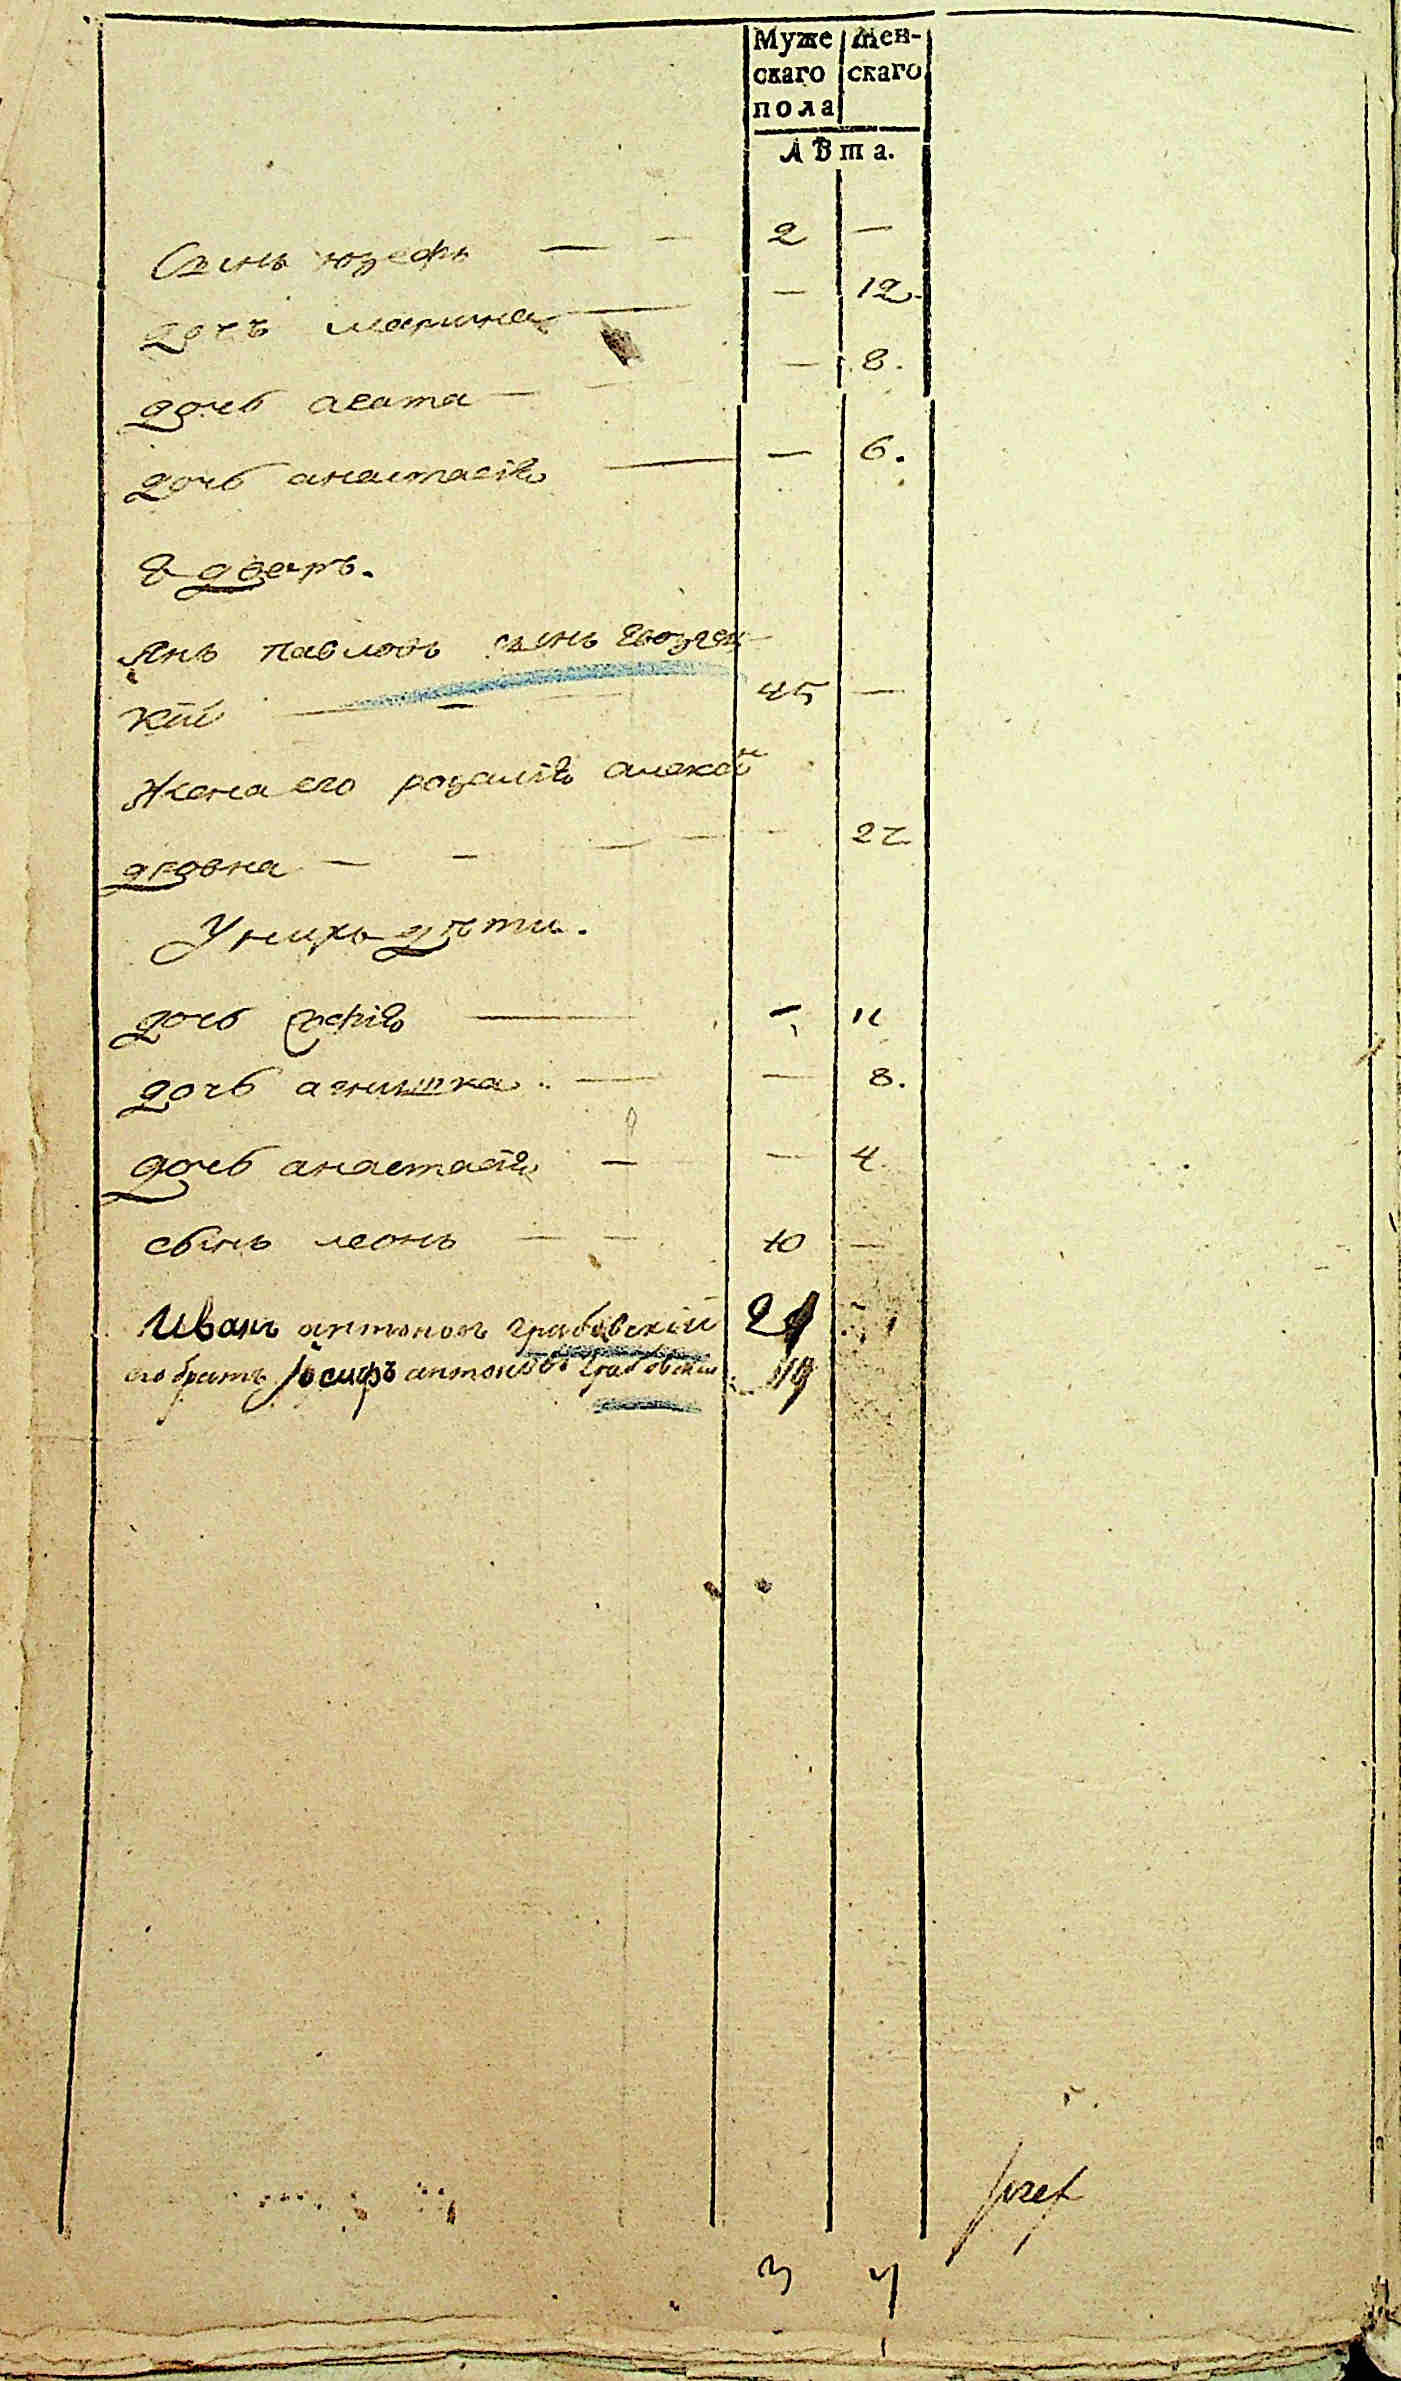 Муже Жен-
скаго скаго
пола
Лѣта.
Сынъ юзефъ — — 2 —
дочъ марина — — 12.
дочь агата — — — 8.
дочь анастасія — — 6.
дворъ.
Янъ павловъ сынъ
кій — — 45 —
Жена его розалія алексан
дровна — — — —
У нихъ дѣти.
дочь софія — —
дочь агнишка — — 8.
дочь анастасія — — 4.
сынъ леонъ — — 10 —
Иванъ антоновъ грабовскій
его братъ Іосифъ антоновъ грабовскій
Jozef
3 4